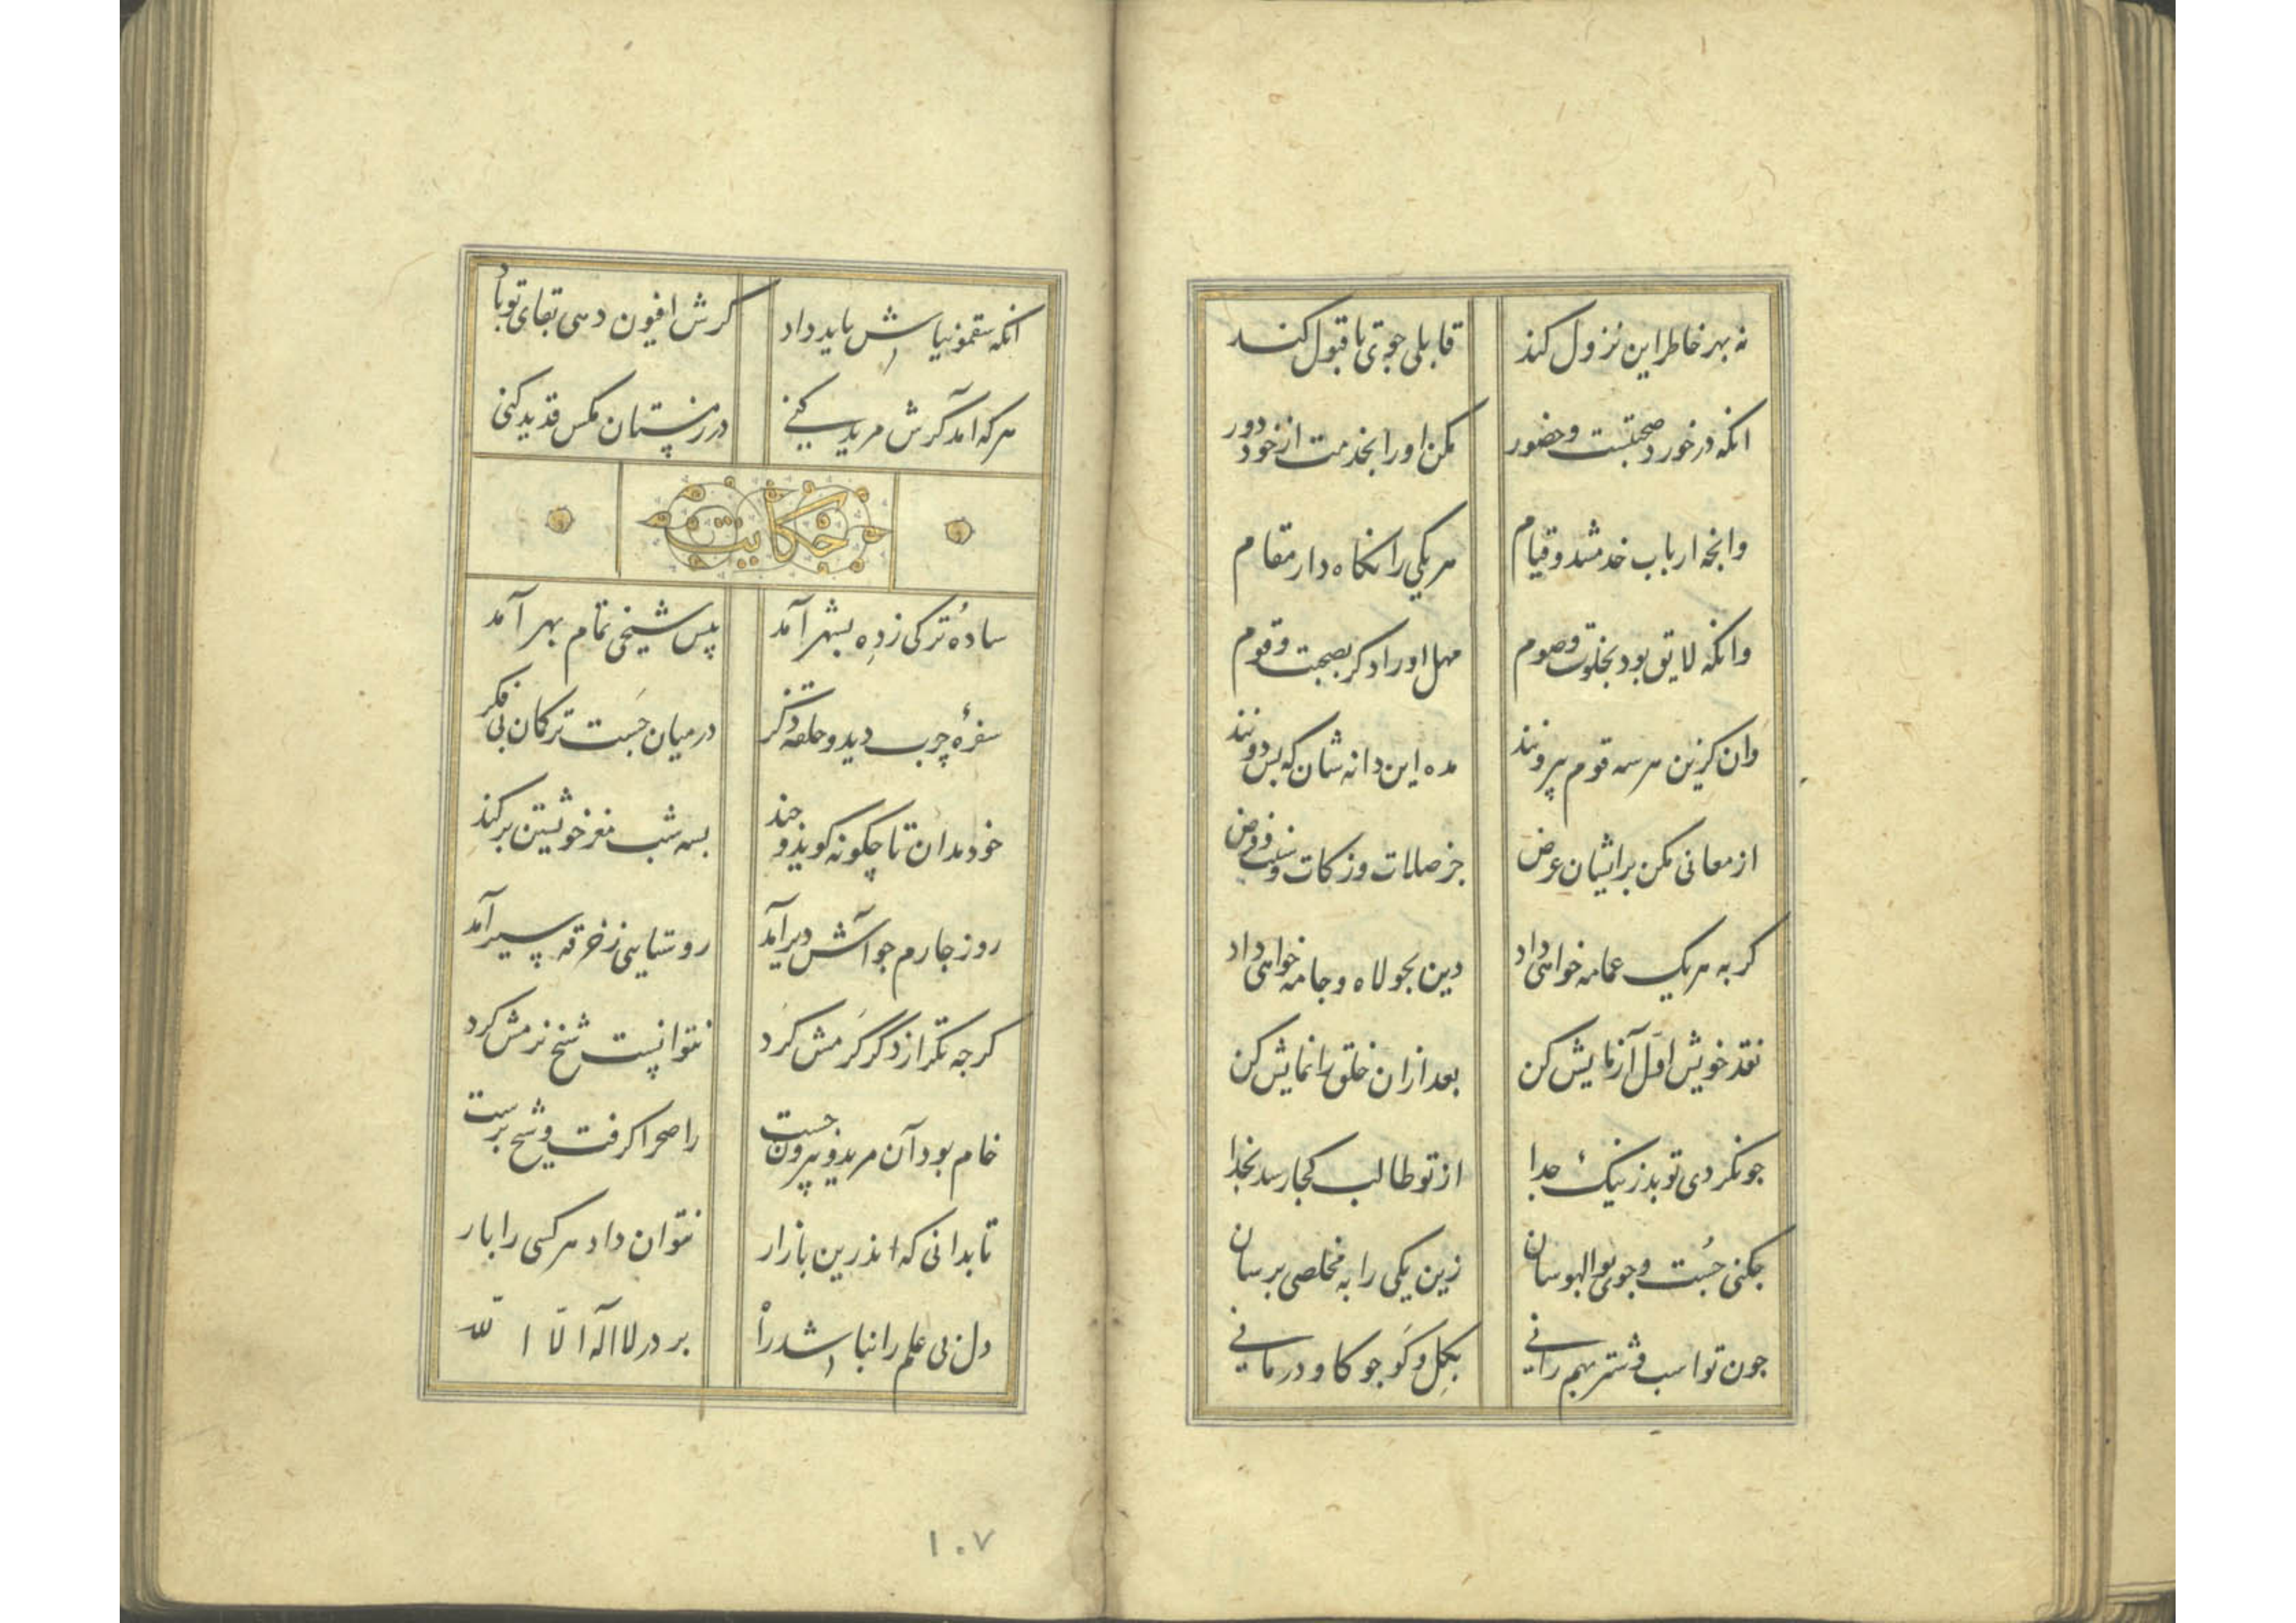 نه بهر خاطر این نزول کند قابلی جوی تا قبول کند
انکه در خورد صحبتست و حضور مکن اورا بخدمت از خود دور
وانچه ارباب خدمتند و قیام هر یکی را نکاه دار مقام
وانکه لایق بود بخلوت و صوم مهل اورا دکر بصحبت قوم
وان کزین هر سه قوم بیرونند مده این دانه شان که بس دونند
از معانی مکن برایشان عرض جز صلات و زکات و سنت و فرض
کر به هر یک عمامه خواهی داد دین بجولاه و جامه خواهی داد
نقد خویش اول آزمایش کن بعد ازان خلق را نمایش کن
جو نکردی تو بد ز نیک جدا از تو طالب کجا رسد بخدا
جکنی جُست و جوی بوالهوسان زین یکی را به مخلصی برسان
جون تو اسب و شتر بهم رانی بکل و کَو جو کاو درمانی
انکه سقمونیاش باید داد کرش افیون دهی بقای تو باد
هر که آمد کرش مرید کنی در زمستان مکس قدید کنی
حکایت
ساده تُرکی ز ده بشهر آمد پیس شیخی تمام بهر آمد
سفرهٔ چرب دید و حلقهٔ ذکر در میان جَست ترکمان بی فکر
خود مدان تا چکونه کوید و جند بسه شب مغز خویشتن برکند
روز جارم جو آتش دیر آمد روستایی ز خرقه سیر آمد
کرجه تکرار ذکر کَرمش کَرد نتوانست شیخ نرمش کرد
خام بود آن مرید و بیرون جست راه صحرا کرفت و شیخ برست
تا بدانی که اندرین بازار نتوان داد هر کسی را بار
دل بی علم را نباشد راه بر در لا اله الا الله
۱۰۷